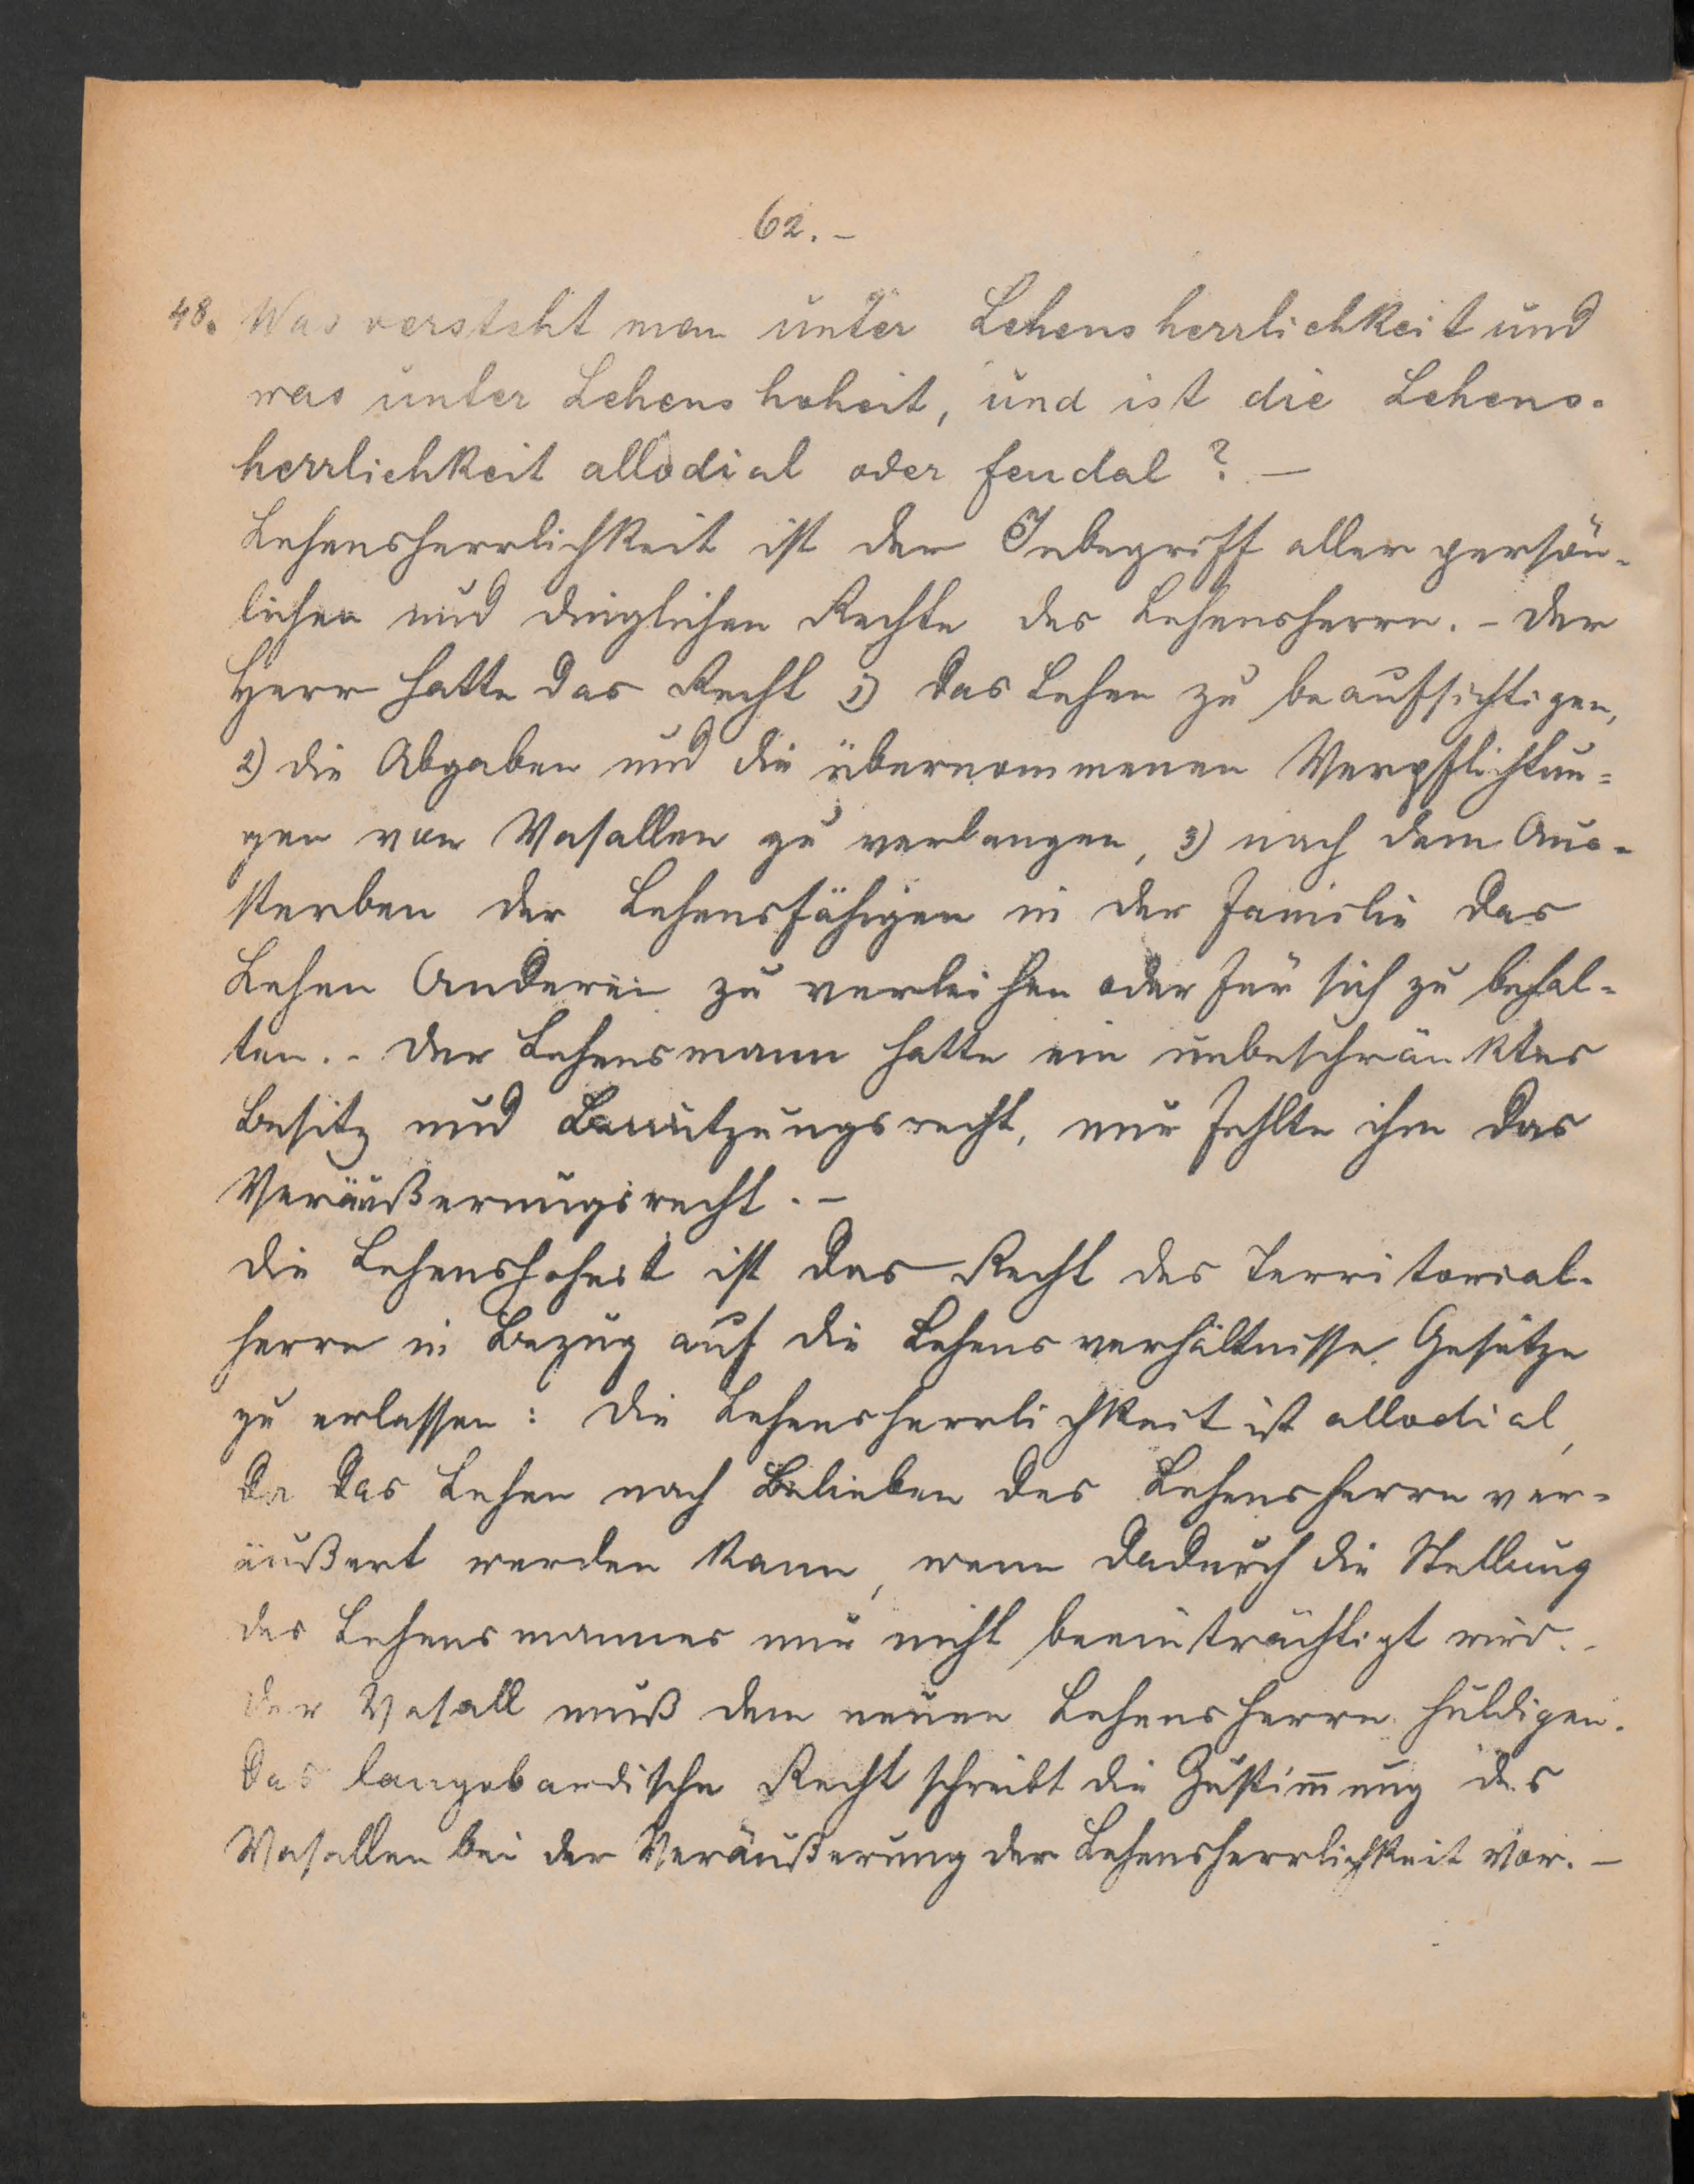 62.-
48. Was versteht man unter Lehensherrlichkeit und
was unter Lehenshoheit, und ist die Lehens-
herrlichkeit allodial oder feudal? -
Lehensherrlichkeit ist der Inbegriff aller persön-
lichen und dinglichen Rechte des Lehensherrn. - Der
Herr hatte das Recht 1) das Lehen zu beaufsichtigen,
2) die Abgaben und die übernommenen Verpflichtun-
gen vom Vasallen zu verlangen, 3) nach dem Aus-
sterben der Lehensfähigen in der Familie das
Lehen Anderen zu verleihen oder für sich zu behal-
ten. - Der Lehensmann hatte ein unbeschränktes
Besitz und Benützungsrecht, nur fehlte ihm das
Veräußerungsrecht. -
Die Lehenshoheit ist das Recht des Territorial-
herrn in Bezug auf die Lehensverhältnisse Gesetze
zu erlassen: Die Lehensherrlichkeit ist allodial,
da das Lehen nach Belieben des Lehensherrn ver-
äußert werden kann, wenn dadurch die Stellung
des Lehensmannes nur nicht beeinträchtigt wird. -
Der Vasall muß dem neuen Lehensherrn huldigen.
Das langobardische Recht schreibt die Zustim̅ung des
Vasallen bei der Veräußerung der Lehensherrlichkeit vor. -